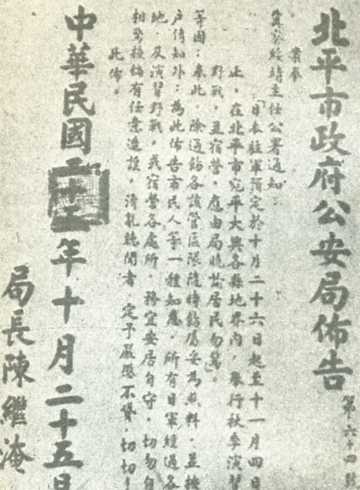 北平市政府公安局佈告
第六十四號
案奉
冀察綏靖主任公署通知：
「日本駐軍預定於十月二十六日起至十一月四日
止，在北平市宛平大興各縣地界內，舉行秋季演習
野戰，並宿營，應由局曉諭居民勿驚」
等因；奉此，除通飭各該管區隊隨時飭屬妥為照料，並挨
戶傳知外；為此佈告市民人等一種知悉，所有日軍經過各
地，及演習野戰，或宿營各處所，務宜安居自守，切勿自
相驚擾倘有任意造謠，淆亂聽聞者，定予嚴懲不貸，切切！
此佈。
中華民國二十五年十月二十五日
局長陳繼淹